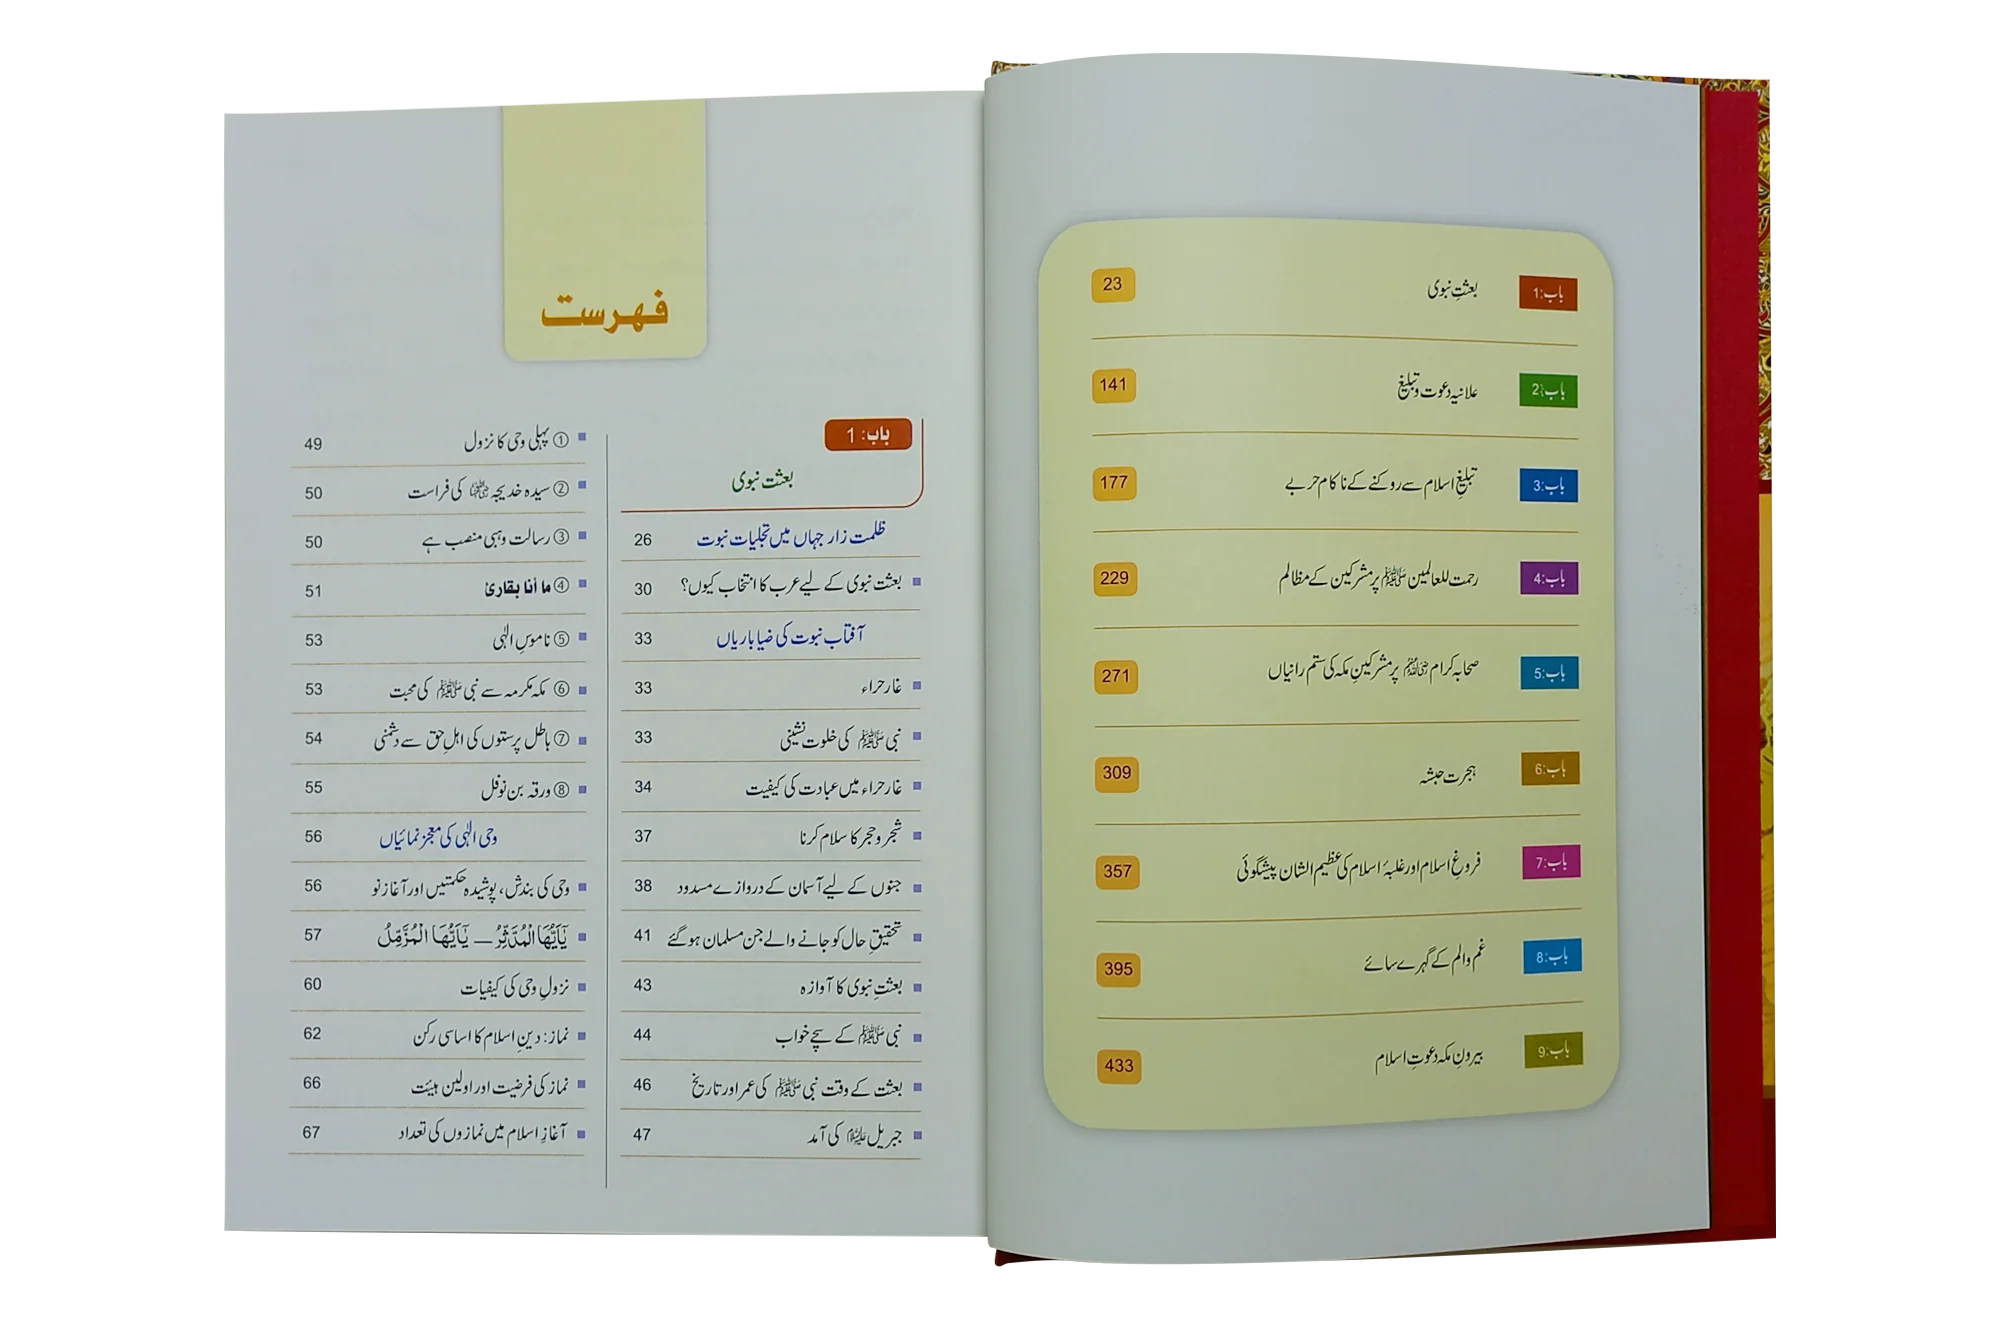 باب:1 بعثتِ نبوی 23
باب:2 علانیہ دعوت و تبلیغ 141
باب:3 تبلیغِ اسلام سے روکنے کے ناکام حربے 177
باب:4 رحمت للعالمین ﷺ پر مشرکین کے مظالم 229
باب:5 صحابہ کرام رضی اللہ عنہم پر مشرکینِ مکہ کی ستم رانیاں 271
باب:6 ہجرت حبشہ 309
باب:7 فروغِ اسلام اور غلبۂ اسلام کی عظیم الشان پیشگوئی 357
باب:8 غم والم کے گہرے سائے 395
باب:9 بیرونِ مکہ دعوتِ اسلام 433
فہرست
باب: 1
بعثت نبوی
ظلمت زار جہاں میں تجلیات نبوت 26
بعثت نبوی کے لیے عرب کا انتخاب کیوں؟ 30
آفتاب نبوت کی ضیا باریاں 33
غار حراء 33
نبی ﷺ کی خلوت نشینی 33
غار حراء میں عبادت کی کیفیت 34
شجر و حجر کا سلام کرنا 37
جنوں کے لیے آسمان کے دروازے مسدود 38
تحقیقِ حال کو جانے والے جن مسلمان ہو گئے 41
بعثتِ نبوی کا آوازہ 43
نبی ﷺ کے سچے خواب 44
بعثت کے وقت نبی ﷺ کی عمر اور تاریخ 46
جبریل علیہ السلام کی آمد 47
① پہلی وحی کا نزول 49
② سیدہ خدیجہ رضی اللہ عنہا کی فراست 50
③ رسالت وہبی منصب ہے 50
④ ما أنا بقارئ 51
⑤ ناموسِ الٰہی 53
⑥ مکہ مکرمہ سے نبی ﷺ کی محبت 53
⑦ باطل پرستوں کی اہلِ حق سے دشمنی 54
⑧ ورقہ بن نوفل 55
وحی الٰہی کی معجز نمائیاں 56
وحی کی بندش، پوشیدہ حکمتیں اور آغاز نو 56
يٰۤاَيُّهَا الْمُدَّثِّرُ — يٰۤاَيُّهَا الْمُزَّمِّلُ 57
نزولِ وحی کی کیفیات 60
نماز: دینِ اسلام کا اساسی رکن 62
نماز کی فرضیت اور اولین ہیئت 66
آغازِ اسلام میں نمازوں کی تعداد 67